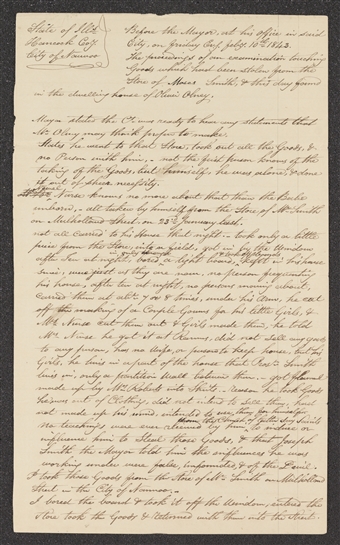 State of Ills
Hancock Coty.
City of Nauvoo
Before the Mayor, at his office in said
City, on Friday Eve, feby. 10th 1843.
The proceedings of an examination touching
Goods which had been stolen from the
Store of Moses Smith, & this day found
in the dwelling house of Oliver Olney.
Mayor states the Ct. was ready to hear any statements that
Mr. Olney may think proper to make.
States he went to that Store, took out all the Goods, &
no Person with him, - not the first person knows of the
taking of the Goods, but himself; he was alone, & done
it out of sheer necessity.
Nurse knows no more about them than the Babe
unborn, - all taken by himself from the Store of Mr. Smith
on Mulholland Street on 23rd January last.
not all carried to his House that night - took only a little
piece from the Store, into a field, got in by the Window
after Ten at night, bored a light
his house, after ten at night, no persons moving about,
carried them at abt. 7 or 8 times, under his arm, he cut
off the making of a Couple Gowns for his little Girls, &
Mrs. Nurse cut them out & Girls made them, he told
Mrs. Nurse he got it at Ramus, did not sell any goods
to any person, has no wife, or person to keep house, but his
Girls, he lives in a part of the house that Pres. Smith
lives in, only a partition wall between them, - got flannel
made up by Mrs. Roberts into Shirts. reason he took Goods
he was out of Clothing, did not intend to sell them,
not made up his mind, intended to use them for himself.
no teachings were ever received by him to induce or
influence him to Steal those Goods, & that Joseph
Smith the Mayor told him the influences he was
working under were false, unfounded, & of the Devil.
I took those Goods from the Store of Mr. Smith on Mulholland
Street in the City of Nauvoo.
I bored the board & took it off the Window, entered the
Store took the Goods & returned with them into the Street